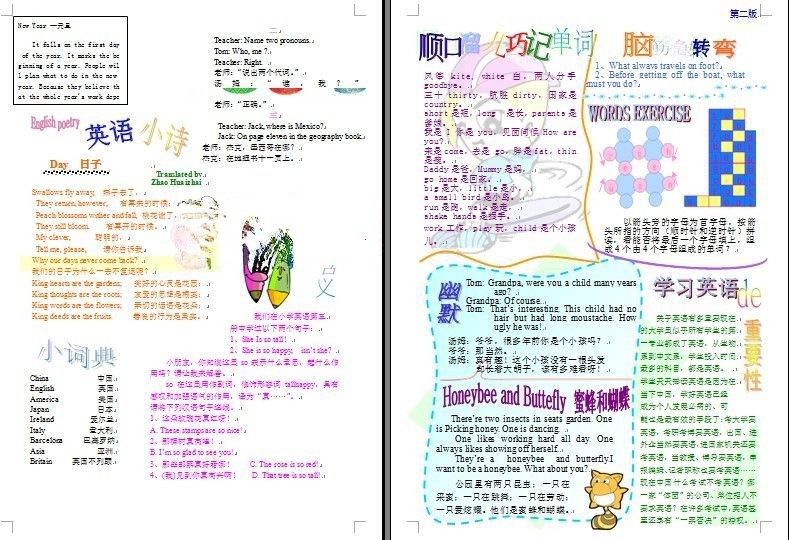 New Year 一元旦
It falls on the first day
of the year. It marks the be
ginning of a year. People wil
l plan what to do in the new
year. Because they believe th
at the whole year's work depe
English poetry
英语小诗
Day 日子
Translated by
Zhao Hua ir hai
Swallows fly away, 燕子去了，
They return, however, 有再来的时候；
Peach blossoms wither and fall, 桃花谢了，
They still bloom. 有再开的时候。
My clever, 聪明的，
Tell me, please, 请你告诉我
Why our days never come back?
我们的日子为什么一去不复返呢？
King hearts are the gardens; 美好的心灵是花园；
King thoughts are the roots; 友爱的思想是根茎；
King words are the flowers; 亲切的话语是花朵；
King deeds are the fruits.
小词典
China 中国
English 英国
America 美国
Japan 日本
Ireland 爱尔兰
Italy 意大利
Barcelona 巴高罗纳
Asia 亚洲
Britain 英国不列颠
二
Teacher: Name two pronouns.
Tom: Who, me ?
Teacher: Right.
老师：“说出两个代词。”
汤姆：“谁，我？”
老师：“正确。”
三
Teacher: Jack, where is Mexico?
Jack: On page eleven in the geography book.
老师：杰克，墨西哥在哪？
杰克：在地理书十一页上。
义
我们在小学英语第三
册中学过以下两个句子：
1、She Is so tall!
2、She is so happy, isn't she?
小朋友，你知道这里 so 表示什么意思，起什么作
用吗？请让我来解答。
so 在这里用作副词，修饰形容词 tall happy，具有
感叹和加强语气的作用，译为“真……”。
请将下列汉语句子连线。
1、这朵玫瑰花真红呀！
A. These stamps are so nice!
2、那棵树真高啊！
B. I'm so glad to see you!
3、那些邮票真好看啊！ C. The rose is so red!
4、(我)见到你真高兴啊！ D. That tree is so tall!
第二版
顺口溜儿巧记单词
风筝 kite, white 白，两人分手
goodbye。
三十 thirty，肮脏 dirty，国家是
country。
short 是短，long 是长，parents 是
爸娘。
我是 I 你是 you，见面问候 How are
you?
来是 come，去是 go，胖是 fat，thin
是瘦。
Daddy 是爸，Mummy 是妈，
go home 是回家。
big 是大，little 是小，
a small bird 是小鸟。
run 是跑，walk 是走，
shake hands 是握手。
work 工作，play 玩，child 是个小孩
儿。
脑筋急转弯
1、What always travels on foot?
2、Before getting off the boat, what
must you do?
WORDS EXERCISE
以箭头旁的字母为首字母，按箭
头所指的方向（顺时针和逆时针）拼
读，看能否将最后一个字母填上，组
成 4 个由 4 个字母组成的单词？
幽默
Tom: Grandpa, were you a child many years
ago?
Grandpa: Of couse.
Tom: That's interesting. This child had no
hair but had long moustache. How
ugly he was!
汤姆：爷爷，很多年前你是个小孩吗？
爷爷：那当然。
汤姆：真有趣！这个小孩没有一根头发
却长着大胡子，该有多难看呀！
Honeybee and Buttefly 蜜蜂和蝴蝶
There're two insects in seats garden. One
is Picking honey. One is dancing.
One likes working hard all day. One
always likes showing off herself.
They're a honeybee and butterfly. I
want to be a honeybee. What about you?
公园里有两只昆虫；一只在
采蜜；一只在跳舞；一只在劳动；
一只爱炫耀。他们是蜜蜂和蝴蝶。
学习英语de重要性
关于英语有多重要现在
的大学里似乎所有学生的第
一专业都成了英语，从生物
系到中文系，学生投入时间
最多的科目，都是英语。
学生天天背读英语是因为在
当下中国，学好英语已经
成为个人发迹必用的、可
能也是最有效的手段了：考大学要
英语，考研考博要英语，出国、进
外企当然要英语，进国家机关还要
考英语，当教授、博导要英语，申
报编辑、记者职称也要考英语……
现在中国什么考试不考英语？哪
一家“体面”的公司、单位招人不
要求英语？在许多考试中，英语甚
至还享有“一票否决”的特权。